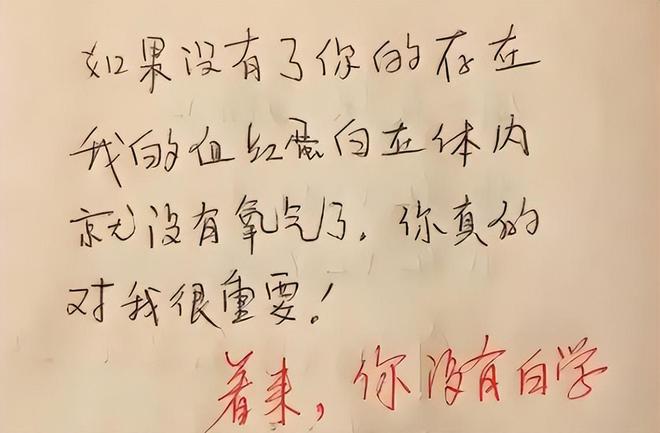 如果没有了你的存在
我的血红蛋白在体内
就没有氧气了。你真的
对我很重要！
着来，你没有白学